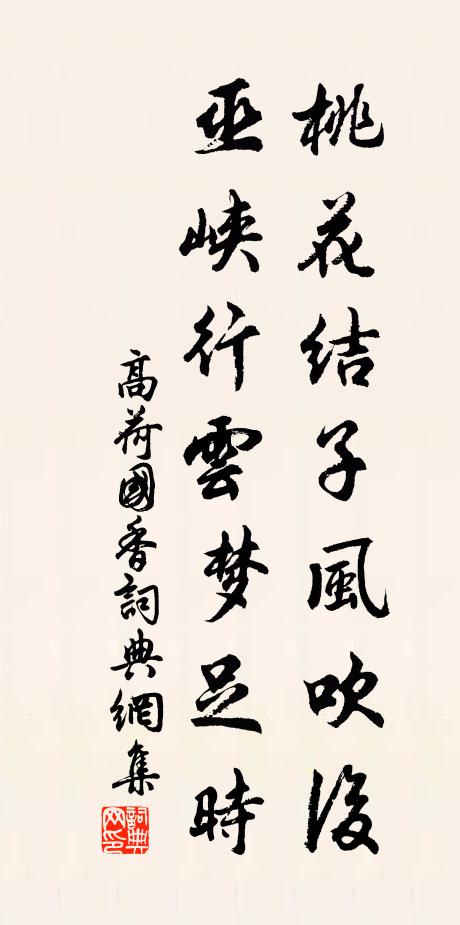 桃花结子風吹後
巫峡行雲梦足時
高荷國香詞典網集
詞典網印